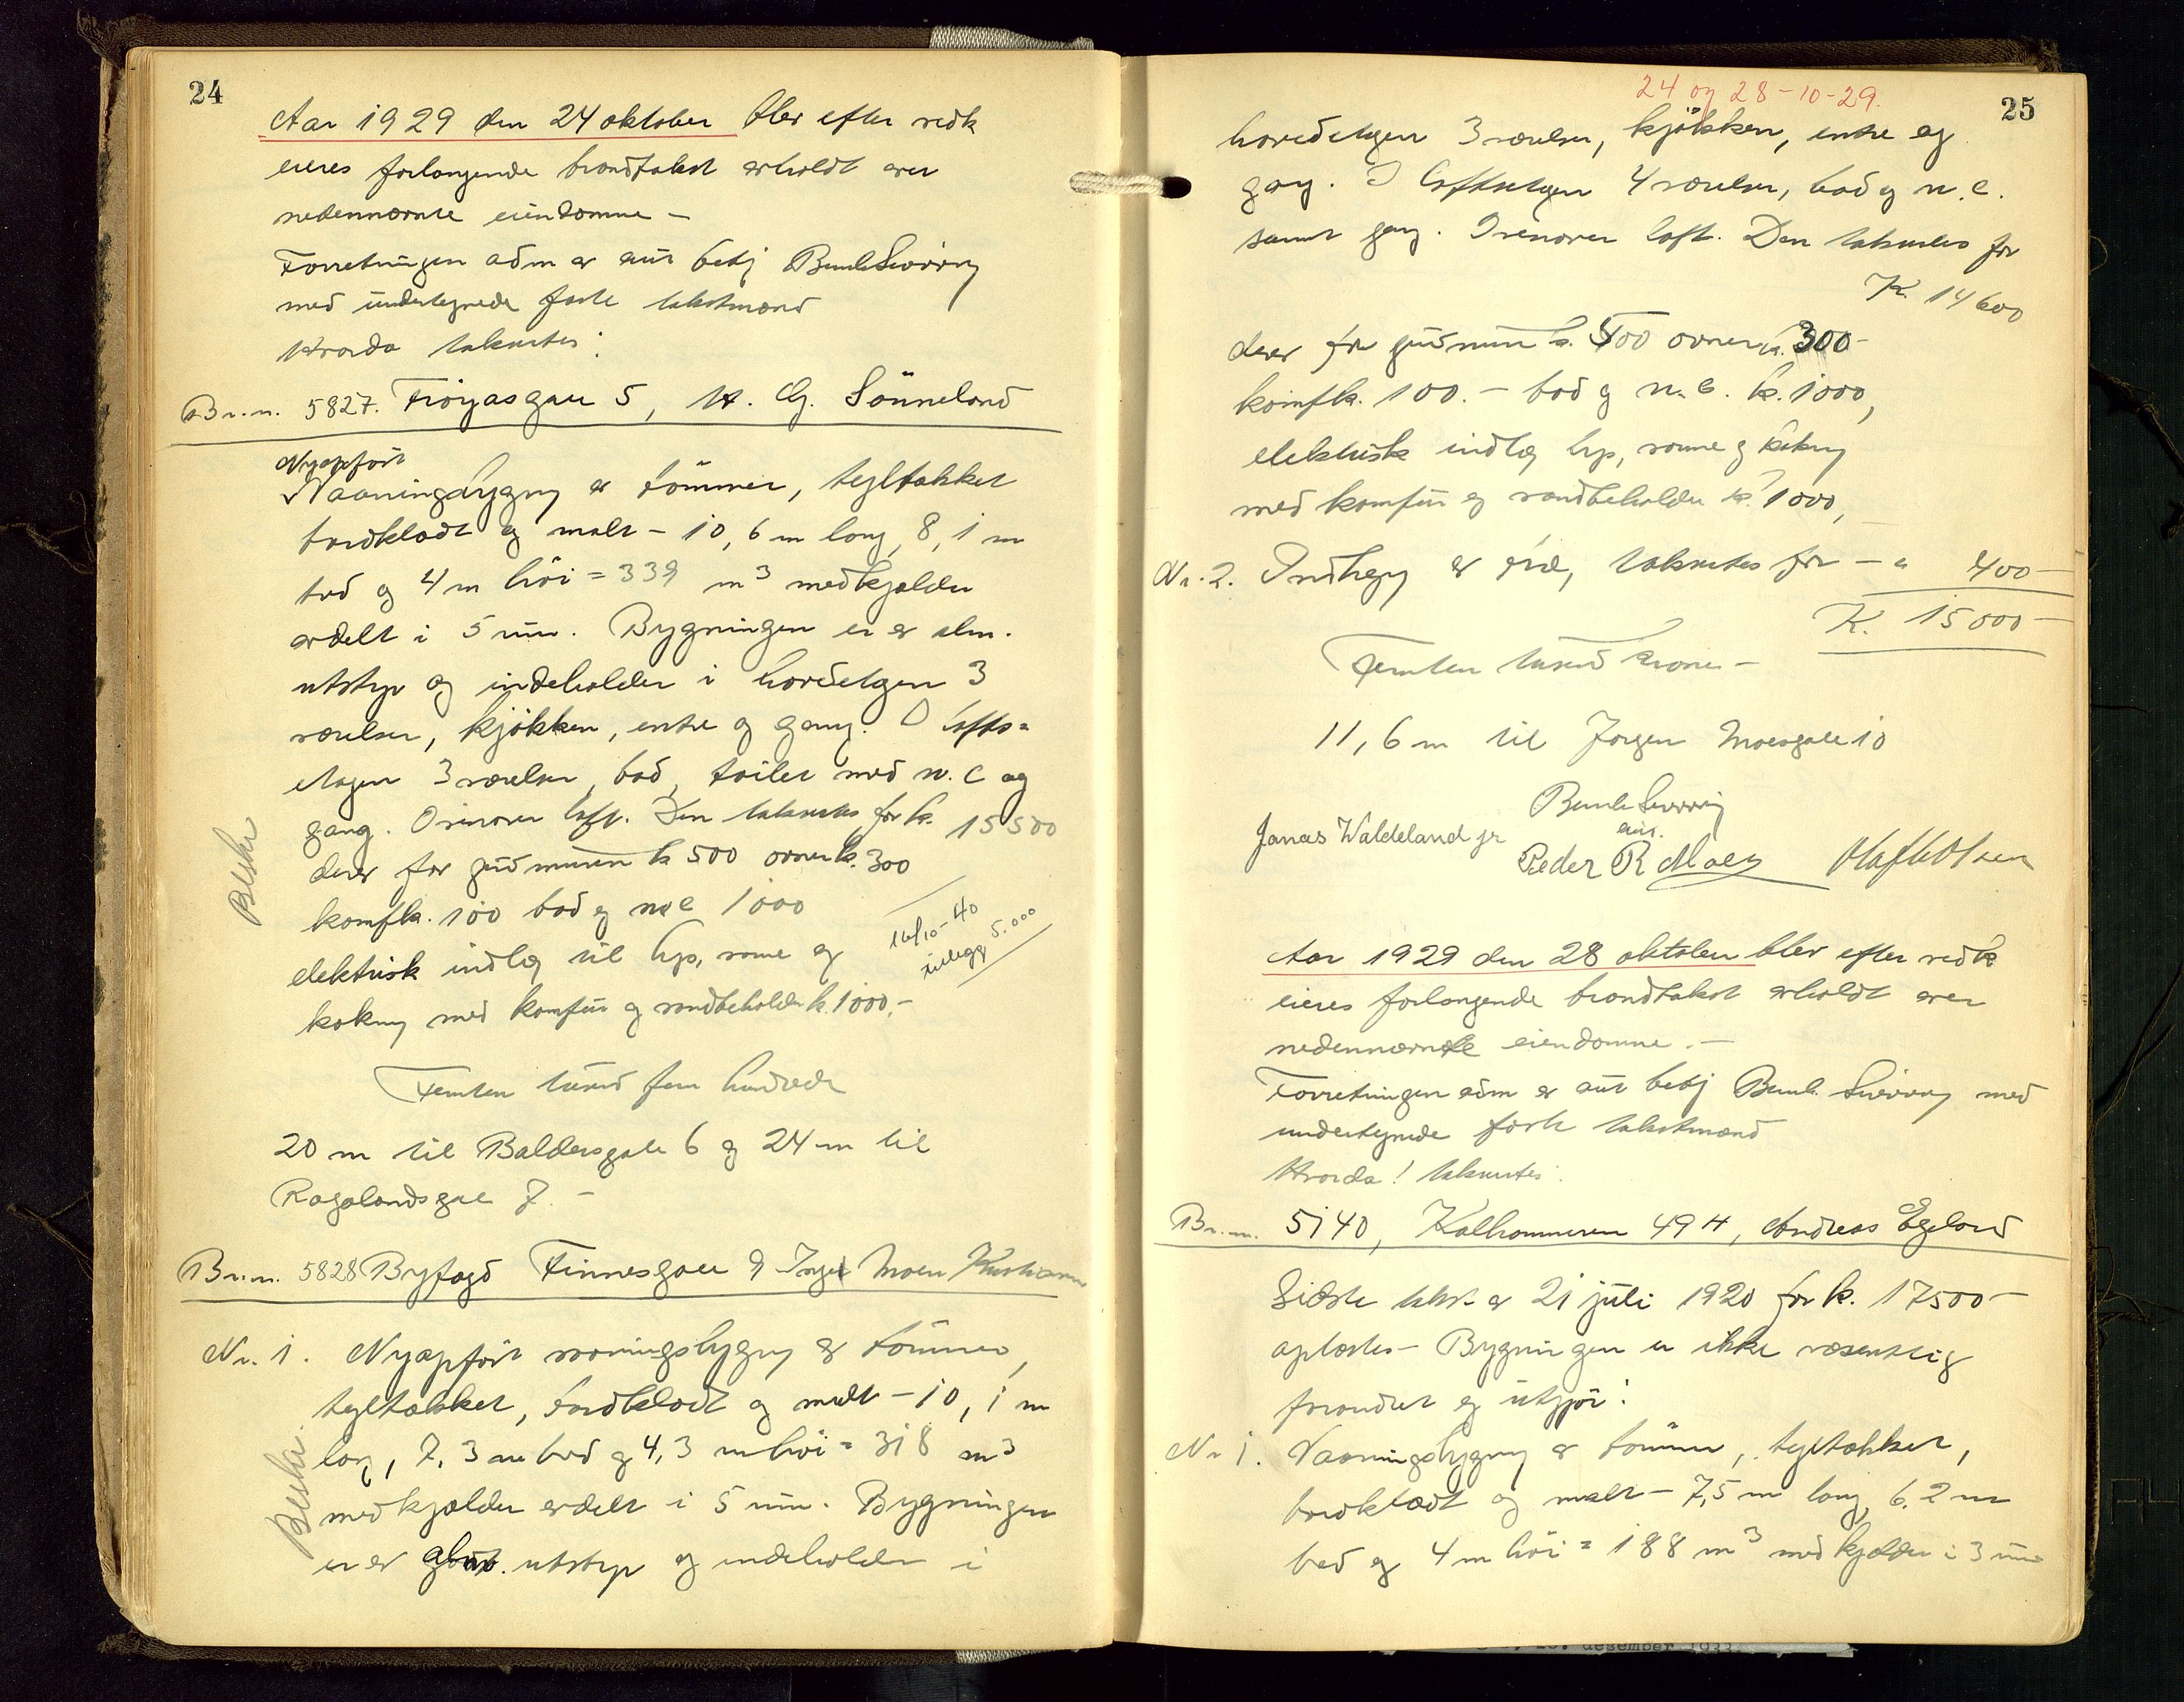 24
Aar 1929 den 24 oktober blev efter vedk
eieres forlangende brandtakst avholdt over
nedennævnte eiendomme –
Forretningen adm av aut betj Bernh Swirry
med undertegnede faste takstmænd
Hvorda taksertes:
Br.n. 5827. Frøyasgate 5, H. G. Sønneland
Nyopført
Vaaningsbygng av tømmer, tegltækket
bordklædt og malt – 10,6 m lang, 8,1 m
bred og 4 m høi = 339 m3 med kjælder
avdelt i 5 rum. Bygningen er av alm.
utstyr og indeholder i hovedetagen 3
værelser, kjøkken, entre og gang. I lofts=
etagen 3 værelser, bad, toilet med w.c og
gang. Ovenover loft. Den takseres for k. 15500
derav for grundmuren k 500 ovner k. 300
komf k. 100 bad og w c 1000
elektrisk indlæg til lys, varme og
kokning med komfur og vandbeholder k. 1000,-
16/10-40
tillegg 5.000
Femten tusend fem hundrede
20 m til Baldersgate 6 og 24 m til
Rogalandsgate 7. –
Br.n. 5828 Byfogd Finnesgate 9 Inger Moen
Nr. 1. Nyopført vaaningsbygng av tømmer,
tegltækket, bordklædt og malt – 10,1 m
lang, 7,3 m bred og 4,3 m høi = 318 m3
med kjælder avdelt i 5 rum. Bygningen
er av alm. utstyr og indeholder i
Beskr.
Beskr.
24 og 28-10-29.
25
hovedetagen 3 værelser, kjøkken, entre og
gang. I loftsetagen 4 værelser, bad og w.c.
samt gang. Ovenover loft. Den takseres for
K. 14600
derav for grundmuren k. 500 ovner k. 300-
komf k. 100.- bad og w.c. k. 1000,
elektrisk indlæg lys, varme og kokng
med komfur og vandbeholder k. 1000,
Nr. 2. Indhegng av , takseres for – " 400 –
K. 15000 –
Femten tusend kroner –
11,6 m til Jørgen Moesgate 10
Bernh Swirry
aut.
Jonas Waldeland jr Peder R Moen Olaf M Olsen
Aar 1929 den 28 oktober blev efter vedk
eieres forlangende brandtakst avholdt over
nedennævnte eiendomme. –
Forretningen adm av aut betj Bernh. Swirry med
undertegnede faste takstmænd
Hvorda! takserttes:
Br.n. 5140, Kalhammeren 49 H, Andreas Egeland
Sidste takst av 21 juli 1920 for k. 17500 –
oplæstes – Bygningen er ikke væsentlig
forandret og utgjør:
Nr 1. Vaaningsbygng av tømmer, tegltækket,
bordklædt og malt – 7,5 m lang, 6,2 m
bred og 4 m høi = 188 m3 med kjælder i 3 rum
desember 1933.